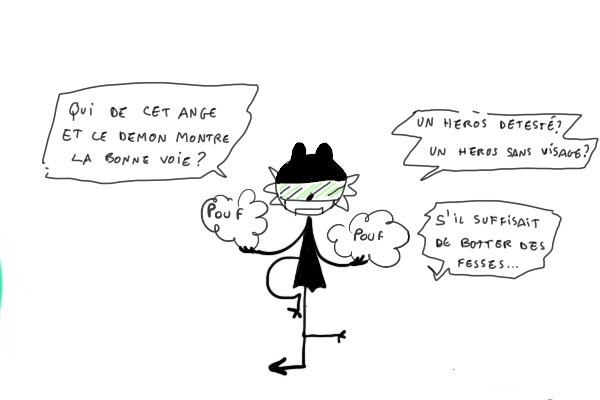 QUI DE CET ANGE
ET CE DEMON MONTRE
LA BONNE VOIE ?
UN HEROS DETESTÉ?
UN HEROS SANS VISAGE?
POUF
POUF
S'IL SUFFISAIT
DE BOTTER DES
FESSES...